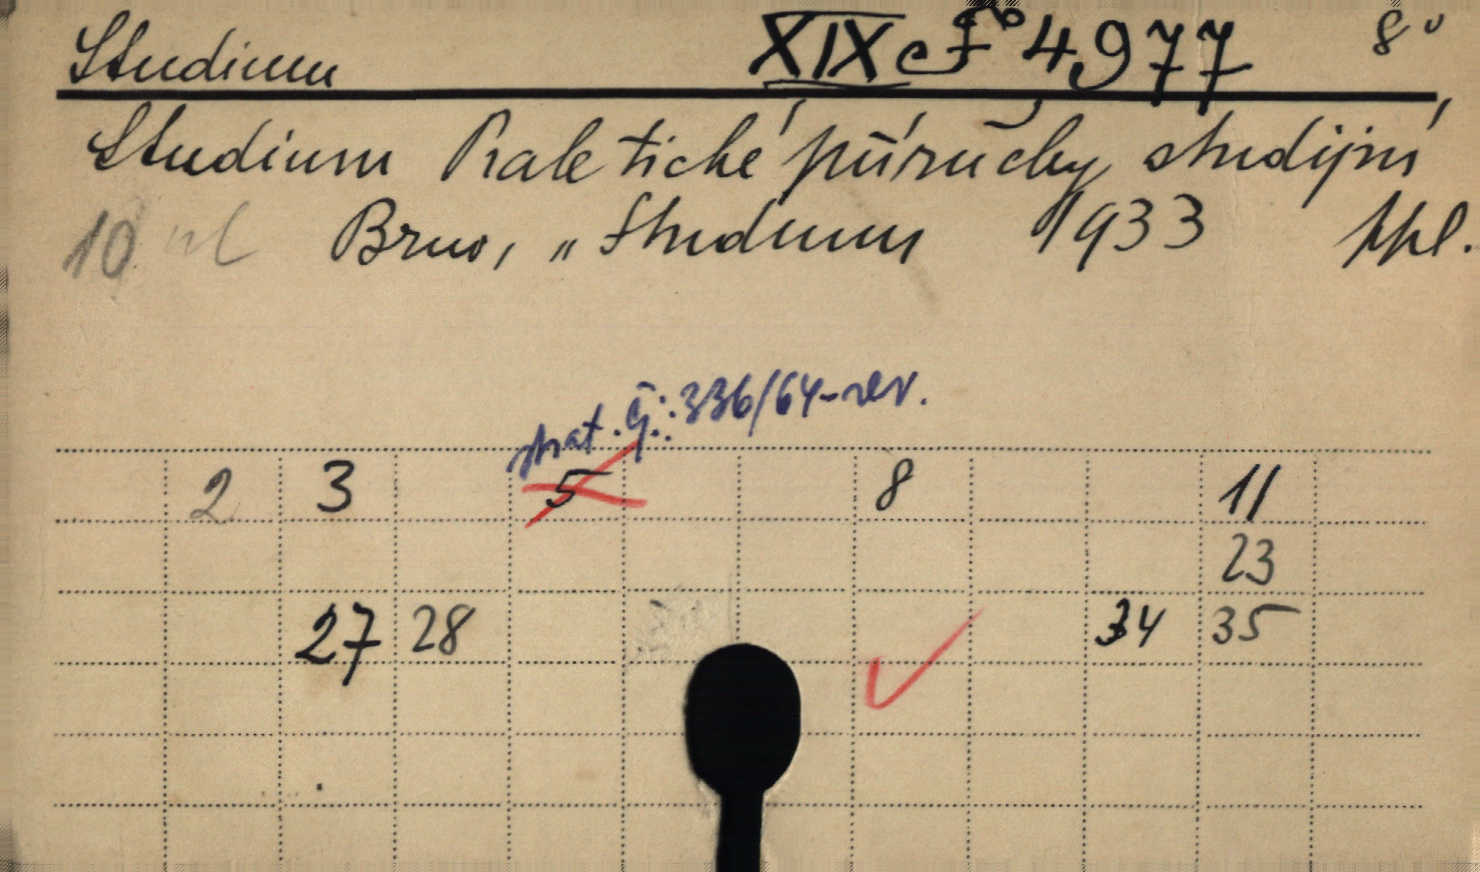 Studium XIX e F° 4977 8°
Studium Praktické příručky studijní
10 Brno, „Studium 1933 ppl.
ztrat. čj.: 336/64-rev.
2 3 5 8 11
23
27 28 34 35